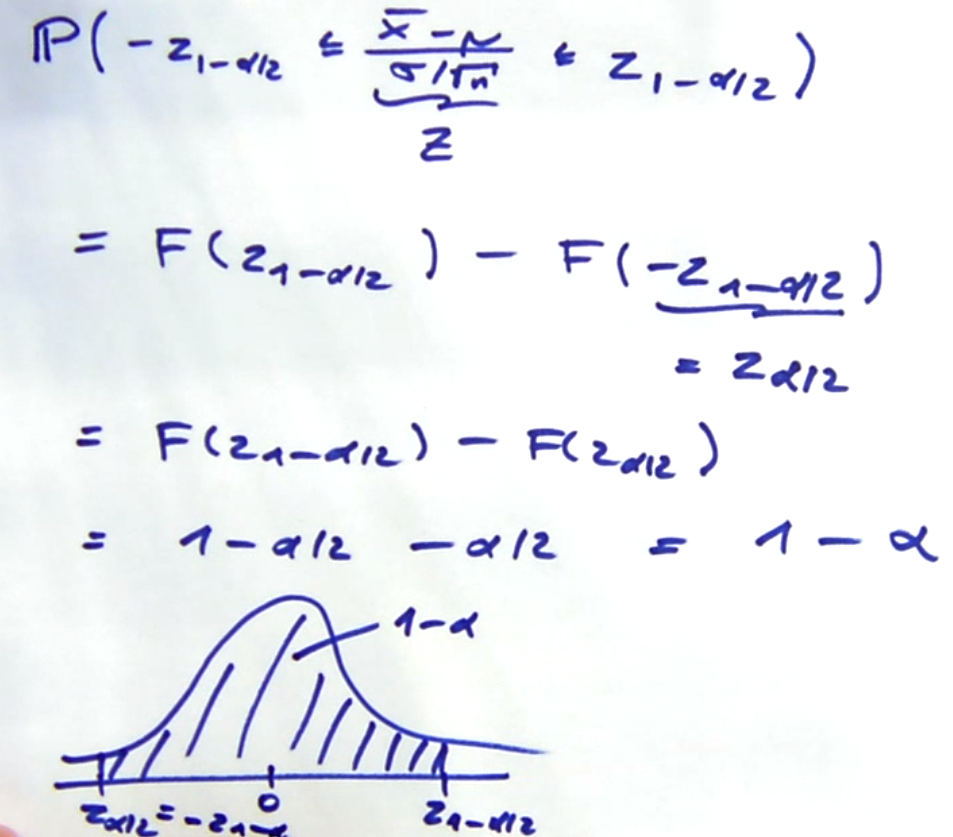 ℙ( -z_{1-α/2} ≤ \frac{x̄ - μ}{σ/√n} ≤ z_{1-α/2} )
Z
= F(z_{1-α/2}) - F(-z_{1-α/2})
= z_{α/2}
= F(z_{1-α/2}) - F(z_{α/2})
= 1 - α/2 - α/2 = 1 - α
1-α
z_{α/2} = -z_{1-α} 0 z_{1-α/2}